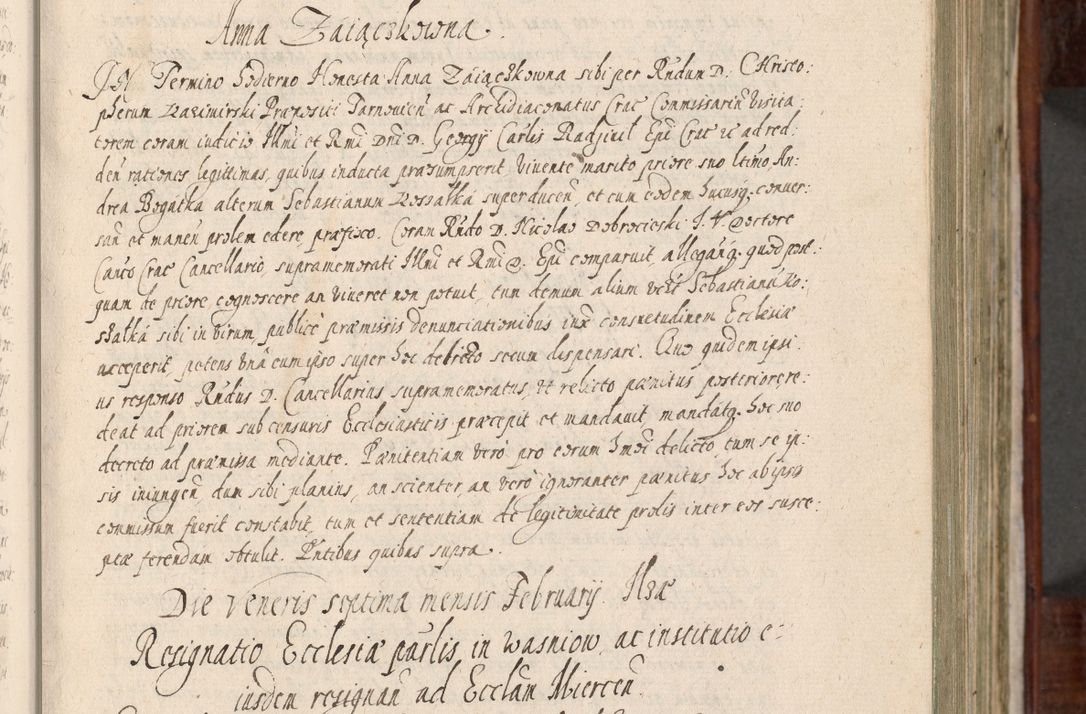 Anna Zaiączkowna.
IN Termino hodierno Honesta Anna Zaiączkowna sibi per Rndum D. Christo:
pherum Kazimirski Præpositi Tarnovien̄ ac Archidiaconatus Crac Commissariu Visita:
torem coram iudicio Illmi et Rmi Dni D. Georgij Carlis Radziuil Epi Crac &c ad red:
den̄ rationes legittimas, quibus inducta præsumpserit, viuente marito priore suo ltimo, An:
drea Bogatka alterum Sebastianum Kossalka superducen̄, et cum eodem hucusq; conuer:
san̄ et manen̄ prolem edere, præfixo. Coram Rndo D. Nicolao Dobrocieski I. V. Doctore
Canco Crac Cancellario, supramemorati Illmi et Rmi D. Epi comparuit, allegan̄q. quod post:
quam de priore cognoscere an viueret non potuit, tum demum alium Sebastianu Ko:
szalka sibi in virum, publice præmissis denunciationibus iux consuetudinem Ecclesiæ
acceperit, petens vna cum ipso super hoc debito secum dispensari. Quo quidem ipsi:
us responso Rndus D. Cancellarius supramemoratus, vt relicto pænitus posteriore, re:
deat ad priorem sub censuris Ecclesiasticis præcepit et mandauit, mandatq. hoc suo
decreto ad præmissa mediante. Pænitentiam vero pro eorum hmoi delicto, tum se ip:
sis iniungen̄, dum sibi planius, an scienter, an vero ignoranter pænitus hoc ab ipsis
commissum fuerit constabit, tum et sententiam de legitimitate prolis inter eos susce:
ptæ ferendam obtulit. Pntibus quibus supra.
Die Veneris septima mensis Februarij.
Resignatio Ecclesiæ parlis in wasniow, ac institutio e:
iusdem resignan̄ ad Ecclam Miercen̄.